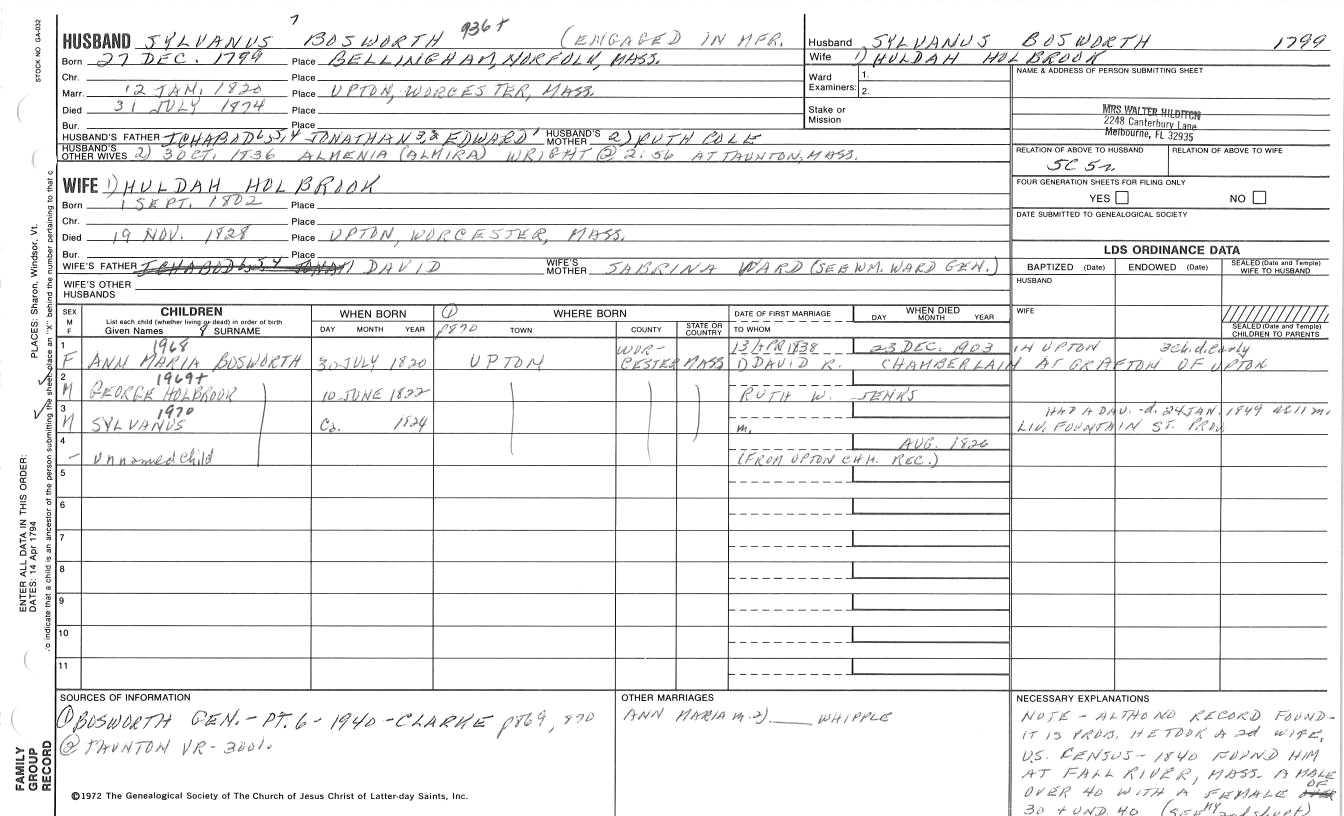 7
HUSBAND SYLVANUS BOSWORTH 936+ (ENGAGED IN MFR.
Born 27 DEC. 1799 Place BELLINGHAM, NORFOLK, MASS.
Chr. Place
Marr. 12 JAN. 1820 Place UPTON, WORCESTER, MASS.
Died 31 JULY 1874 Place
Bur. Place
HUSBAND'S FATHER ICHABOD 6,5,4 JONATHAN 3,2 EDWARD 1 HUSBAND'S MOTHER 2) RUTH COLE
HUSBAND'S OTHER WIVES 2) 3 OCT. 1836 ALMENIA (ALMIRA) WRIGHT @ 2. 56 AT TAUNTON, MASS.
Husband SYLVANUS BOSWORTH 1799
Wife 1) HULDAH HOLBROOK
Ward Examiners: 1. 2.
Stake or Mission
NAME & ADDRESS OF PERSON SUBMITTING SHEET
MRS WALTER HILDITCH
2248 Canterbury Lane
Melbourne, FL 32935
RELATION OF ABOVE TO HUSBAND RELATION OF ABOVE TO WIFE
5C 5r.
FOUR GENERATION SHEETS FOR FILING ONLY
YES NO
DATE SUBMITTED TO GENEALOGICAL SOCIETY
WIFE 1) HULDAH HOLBROOK
Born 1 SEPT. 1802 Place
Chr. Place
Died 19 NOV. 1828 Place UPTON, WORCESTER, MASS.
Bur. Place
WIFE'S FATHER ICHABOD 6,5,4 DAVID WIFE'S MOTHER SABRINA WARD (SEE WM. WARD GEN.)
WIFE'S OTHER HUSBANDS
LDS ORDINANCE DATA
BAPTIZED (Date) ENDOWED (Date) SEALED (Date and Temple) WIFE TO HUSBAND
HUSBAND
WIFE
SEALED (Date and Temple) CHILDREN TO PARENTS
SEX M F CHILDREN WHEN BORN WHERE BORN DATE OF FIRST MARRIAGE WHEN DIED
List each child (whether living or dead) in order of birth
Given Names 8 SURNAME DAY MONTH YEAR ① p870 TOWN COUNTY STATE OR COUNTRY TO WHOM DAY MONTH YEAR
1 1968 WOR- 13 APR 1838 23 DEC. 1903 IN UPTON 3 Ch. d. early
F ANN MARIA BOSWORTH 30 JULY 1820 UPTON CESTER MASS 1) DAVID R. CHAMBERLAIN AT GRAFTON OF UPTON
2 1969+
M GEORGE HOLBROOK 10 JUNE 1822 RUTH W. JENKS
3 1970 HAD A DAU. -d. 24 JAN. 1849 AE 11 m.
M SYLVANUS Ca. 1824 m. LIV. FOUNTAIN ST. PROV
4 AUG. 1826
- Unnamed child (FROM UPTON CHH. REC.)
5
6
7
8
9
10
11
SOURCES OF INFORMATION
① BOSWORTH GEN. - PT. 6 - 1940 - CLARKE p869, 870
② TAUNTON VR - 3001.
OTHER MARRIAGES
ANN MARIA m. 2) WHIPPLE
NECESSARY EXPLANATIONS
NOTE - ALTHO NO RECORD FOUND-
IT IS PROB. HE TOOK A 2d WIFE,
U.S. CENSUS - 1840 FOUND HIM
AT FALL RIVER, MASS. A MALE
OVER 40 WITH A FEMALE OF
30 + UND. 40
©1972 The Genealogical Society of The Church of Jesus Christ of Latter-day Saints, Inc.
STOCK NO GA-032
PLACES: Sharon, Windsor, Vt.
ENTER ALL DATA IN THIS ORDER:
DATES: 14 Apr 1794
To indicate that a child is an ancestor of the person submitting the sheet, place an "X" behind the number pertaining to that c
FAMILY
GROUP
RECORD